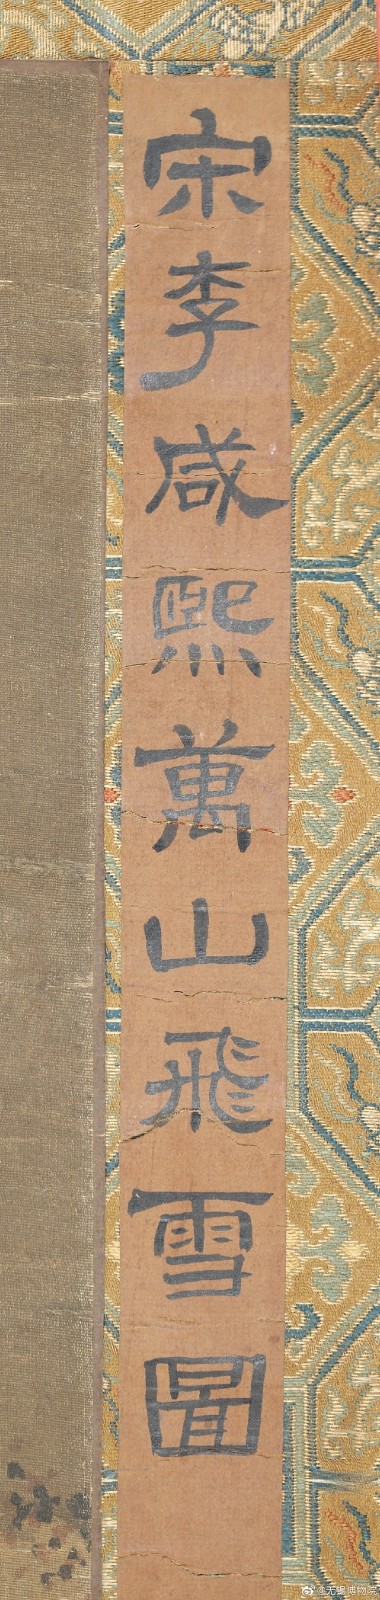 宋李咸熙萬山飛雪圖
@无锡博物院